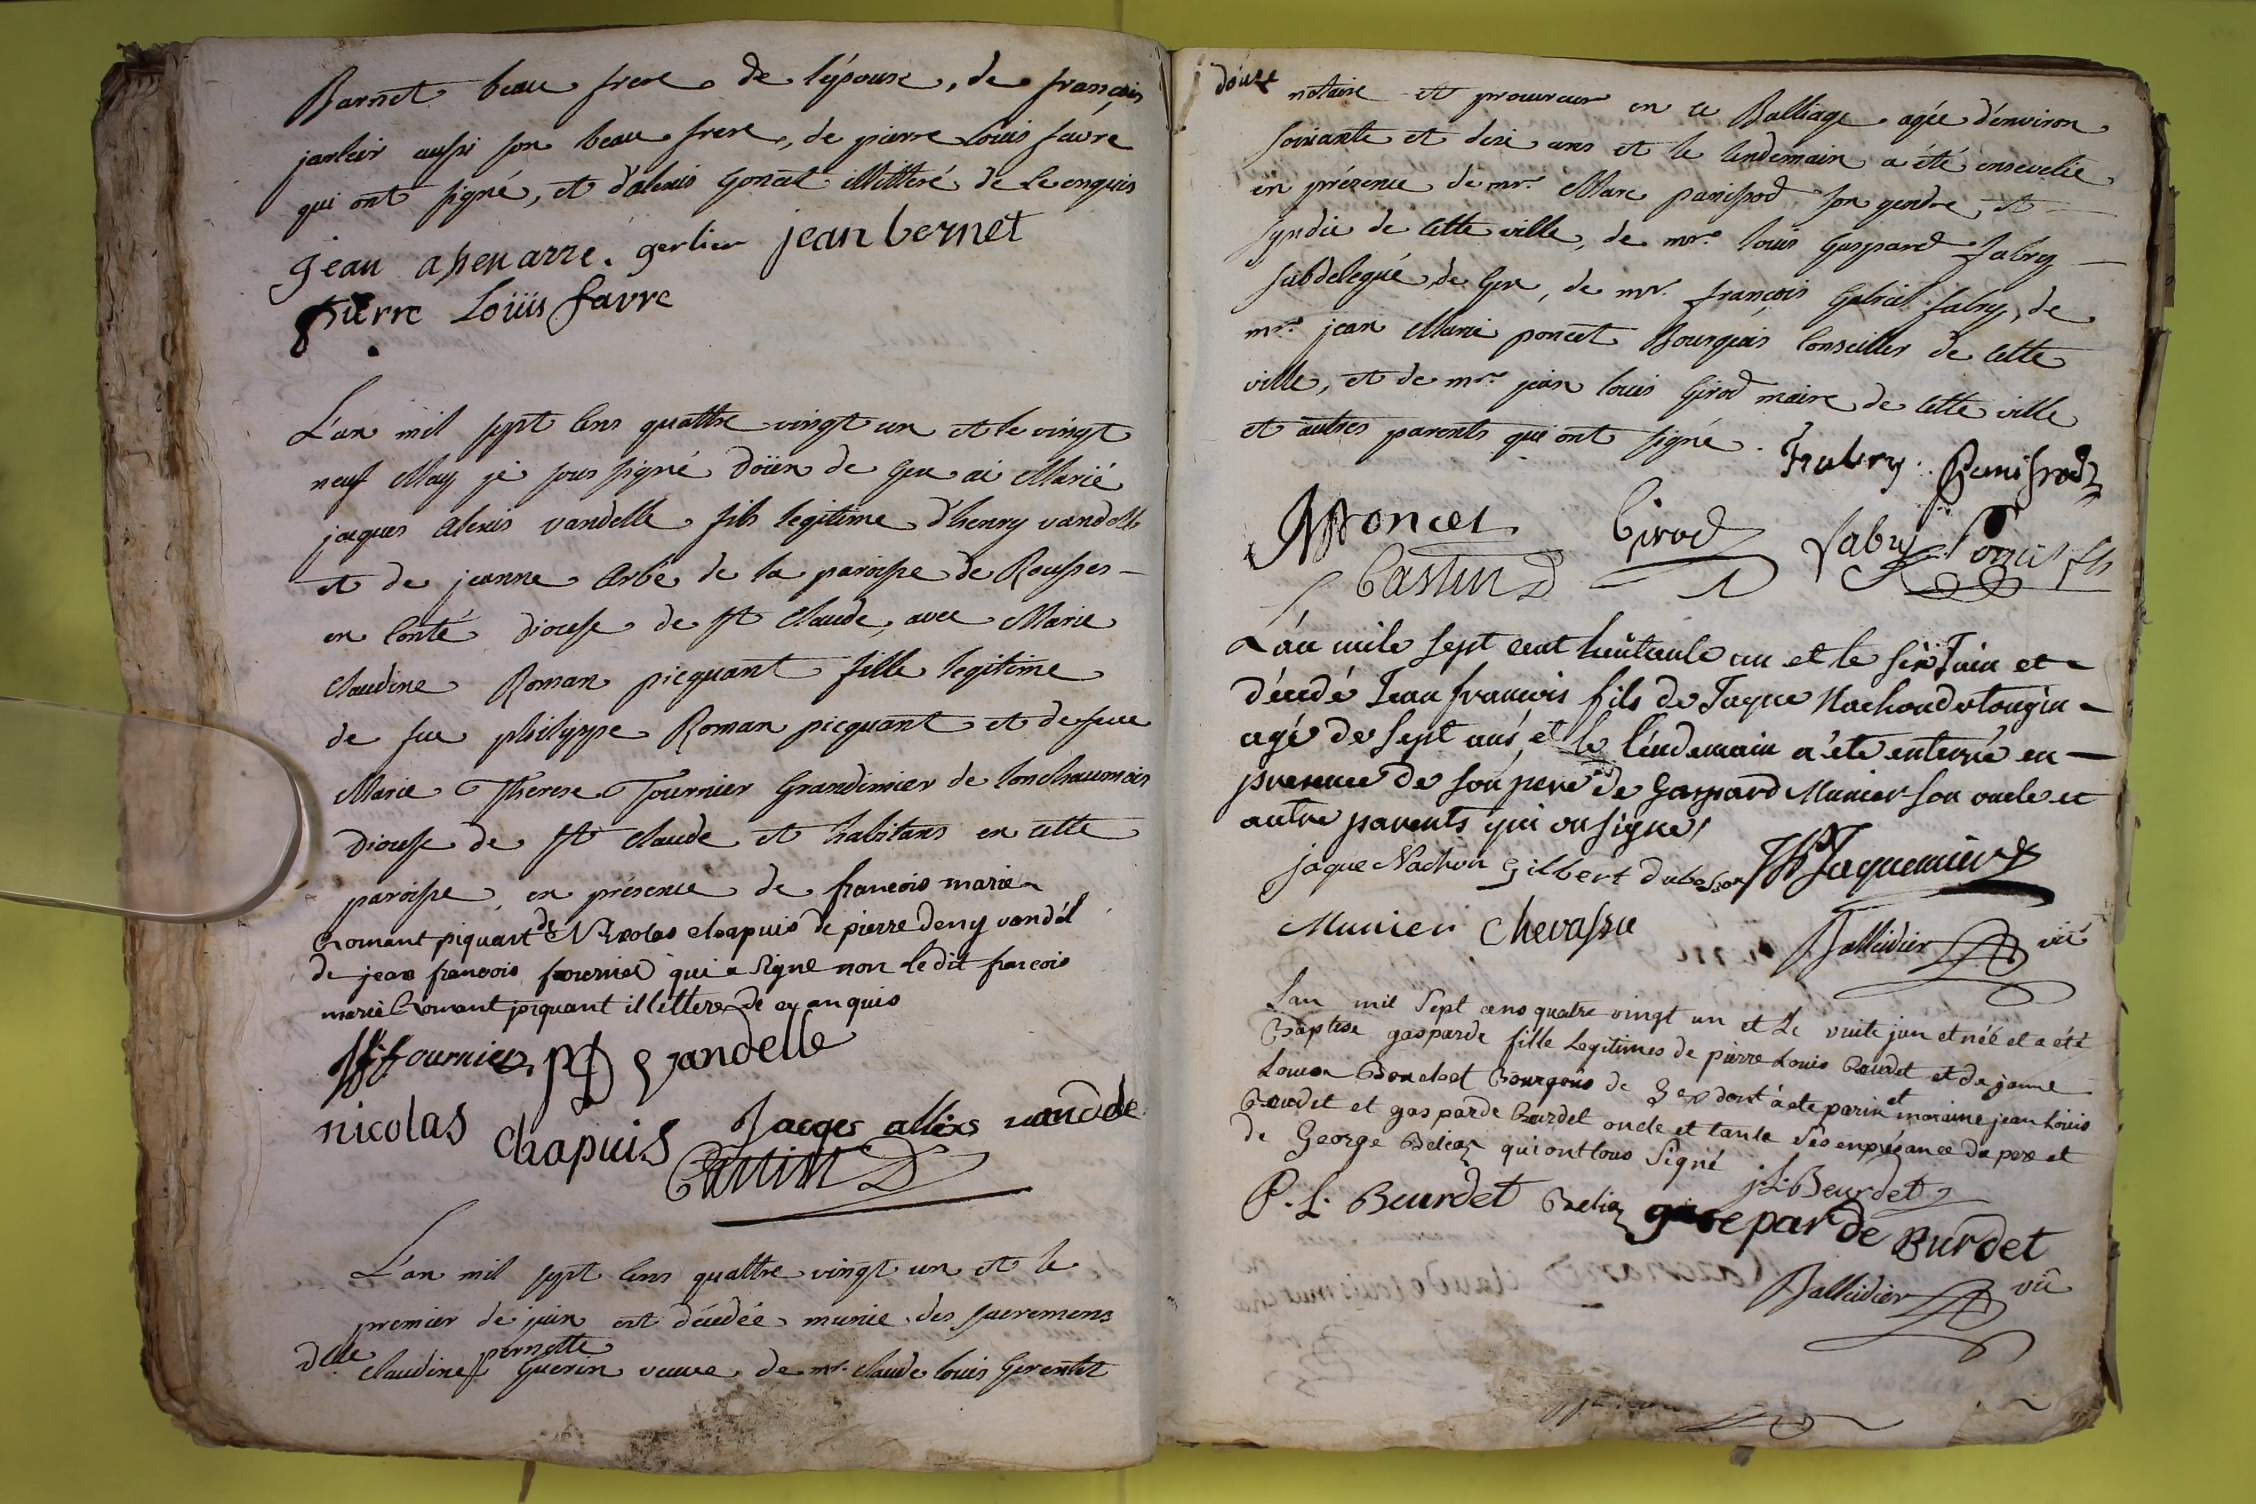 Barnet beau frere de l'épouse, de françois
jarlier aussi son beau frere, de pierre Louis favre
qui ont signé, et d'alexis Goncet illitteré de Ce enquis
jean apenarre. gerlier jean bornet
pierre Loüis favre
L'an mil sept Cens quattre vingt un et le vingt
neuf May je sous signé Doïen de Gex ai Marié
jacques Alexis vandelle fils legitime d'henry vandelle
et de jeanne Arbé de la paroisse de Rousses
en Conté Diocese de St Claude, avec Marie
Claudine Roman picquant fille legitime
de feu philippe Roman picquant et de feue
Marie Therese Tournier Grandimier de Lonchaumois
Diocese de St Claude et habitans en cette
paroisse, en présence de francois marie
Romant piquant de Nicolas chapuis de pierre deny vandel
de jean francois fournier qui a signe non le dit francois
marie Romant piquant illettere de ce anquis
JF fournier, PD vandelle
nicolas chapuis Jacqes allexs vandele
Castin D
L'an mil sept Cens quattre vingt un et le
premier de juin est décédée munie des sacremens
dlle Claudine pernette Guerin veuve de mr. Claude Louis Gerentet
douze
notaire et procureur en ce Balliage agée d'environ
soixante et dix ans et le lendemain a été ensevelie
en présence de mr. Marc panissod son gendre, et
syndic de cette ville, de mr. Louis Gaspard fabry
subdelegué de Gex, de mr. françois Gabriel fabry, de
mr. jean Marie poncet Bourgeois Conseiller de cette
ville, et de mr. jean Louis Girod maire de cette ville
et autres parents qui ont signé. Fabry. Panissod
Poncet Girod fabry Poncet fils
Castin D
L'an mile sept cent huitante un et le six Juin et
décedé Jean françois fils de Jaque Nachon de tougin
agé de sept ans et le l'endemain a été enterré en
presence de son pere de Gaspard Munier son oncle et
autre parents qui on signe,
jaque Nachon gilbert dubesson Jaquemier
Munier Chevassu
Balleidier vic
Lan mil sept cens quatre vingt un et Le vuite juin et néé et a été
Baptise gasparde fille Legitimes de pierre Louis Beurdet et de janne
Louise Bouchet Bourgois de Gex dont a ete parin et maraine jean Louis
Beurdet et gasparde Burdet oncle et tante ses en présance du pere et
de George Beliaz qui ont tous signé
P. L. Beurdet Beliaz J L Beurdet
gasepar de Burdet
Balleidier vic